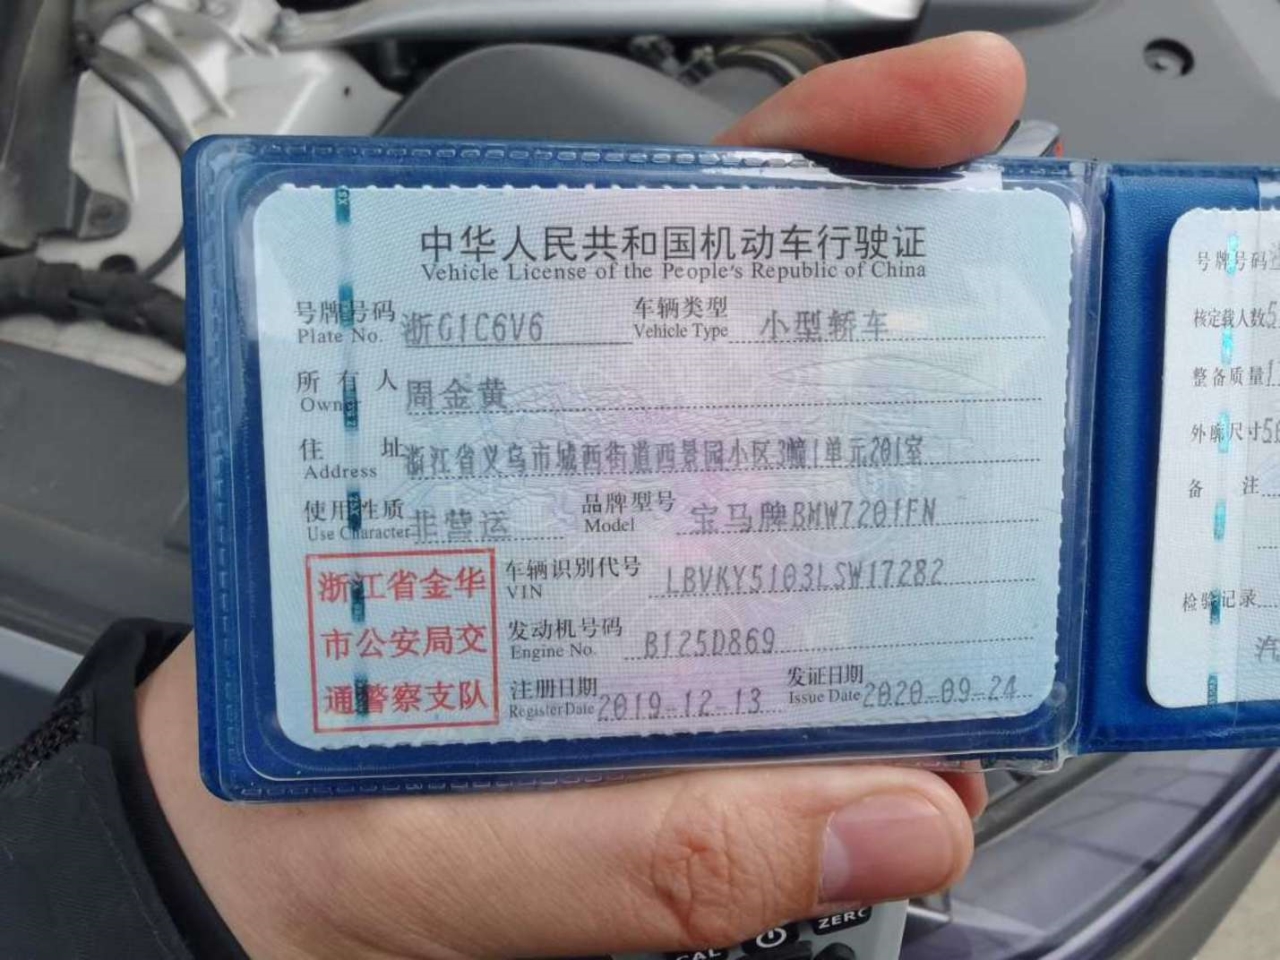 中华人民共和国机动车行驶证
Vehicle License of the People's Republic of China
号牌号码 浙G1C6V6 车辆类型 小型轿车
Plate No. Vehicle Type
所有人 周金黄
Owner
住址 浙江省义乌市城西街道西景园小区3幢1单元201室
Address
使用性质 非营运 品牌型号 宝马牌BMW7201FN
Use Character Model
车辆识别代号 LBVKY5103LSW17282
VIN
发动机号码 B125D869
Engine No.
注册日期 2019-12-13 发证日期 2020-09-24
Register Date Issue Date
浙江省金华
市公安局交
通警察支队
号牌号码
核定载人数5
整备质量1
外廓尺寸50
备注
检验记录
汽
CAL
ZERO